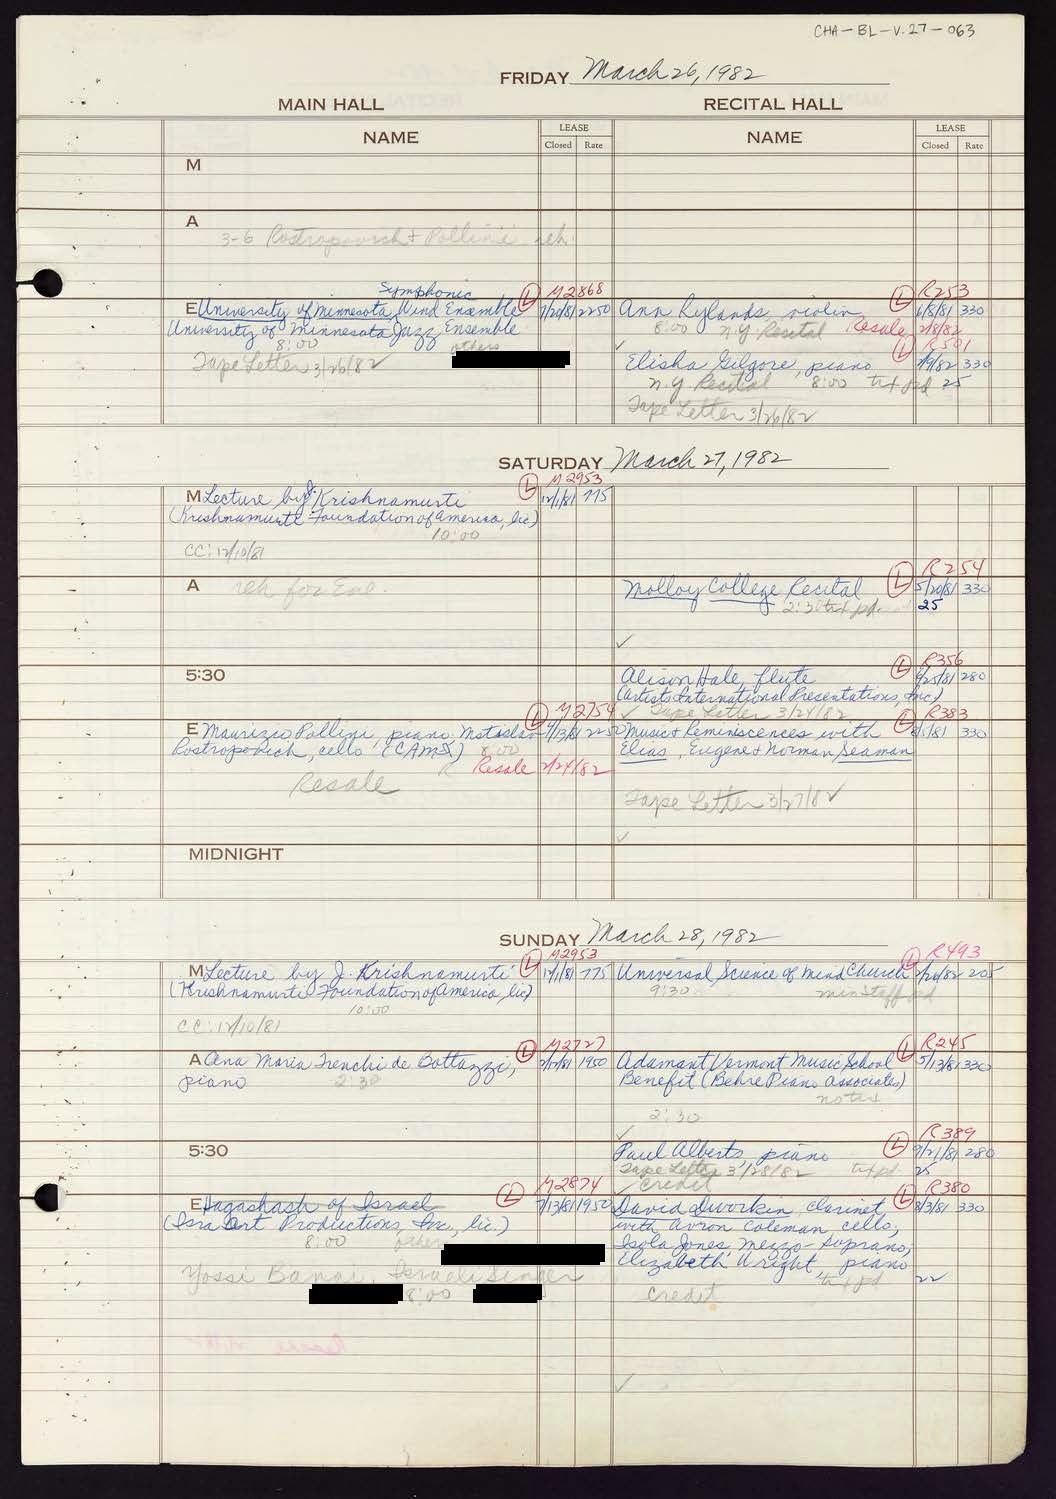 CHA-BL-V.27-063
FRIDAY March 26, 1982
MAIN HALL RECITAL HALL
NAME LEASE Closed Rate NAME LEASE Closed Rate
M
A
3-6 Rostropovich + Pollini reh.
Symphonic (L) M2868 (L) R253
E University of Minnesota Wind Ensemble 2250 Ann Rylands, violin 6/8/81 330
University of Minnesota Jazz Ensemble 8:00 N.Y. Recital Resale 2/8/82
8:00 others (L) R501
Tape Letter 3/26/82 Elisha Gilgore, piano 2/9/82 330
N.Y. Recital 8:00 txt pd 25
Tape Letter 3/26/82
SATURDAY March 27, 1982
(L) M2953
M Lecture by J. Krishnamurti 12/1/81 775
(Krishnamurti Foundation of America, lic)
10:00
CC: 12/10/81
(L) R254
A reh for Eve. Molloy College Recital 5/20/81 330
2:30 txt pd. 25
(L) R356
5:30 Alison Hale, flute 9/25/81 280
(Artists International Presentations, Inc)
(L) M2754 Tape Letter 3/24/82 (L) R383
E Maurizio Pollini, piano Mstislav 4/3/81 2250 Music + Reminiscences with 8/5/81 330
Rostropovich, cello (CAMI) 8:00 Elias, Eugene + Norman Seaman
R Resale 2/24/82
Resale
Tape Letter 3/27/82
MIDNIGHT
SUNDAY March 28, 1982
(L) M2953 (L) R493
M Lecture by J. Krishnamurti 12/1/81 775 Universal Science of Mind Church 2/26/82 205
(Krishnamurti Foundation of America, lic) 9:30 min staff pd
10:00
CC: 12/10/81
(L) M2727 (L) R245
A Ana Maria Trenchi de Bottazzi, 2/12/81 1950 Adamant Vermont Music School 5/13/81 330
piano 2:30 Benefit (Behre Piano Associates)
notes
2:30
(L) R389
5:30 Paul Alberts, piano 9/21/81 280
Tape Letter 3/28/82 txt pd. 25
(L) M2874 credit (L) R380
E Hagashash of Israel 7/13/81 1950 David Dworkin, clarinet 8/3/81 330
(Isra Art Productions, Inc., lic.) with Avron Coleman, cello,
8:00 others Isola Jones, Mezzo-Soprano;
Elizabeth Wright, piano
Yossi Banai, Israeli Singer txt pd 22
8:00 credit